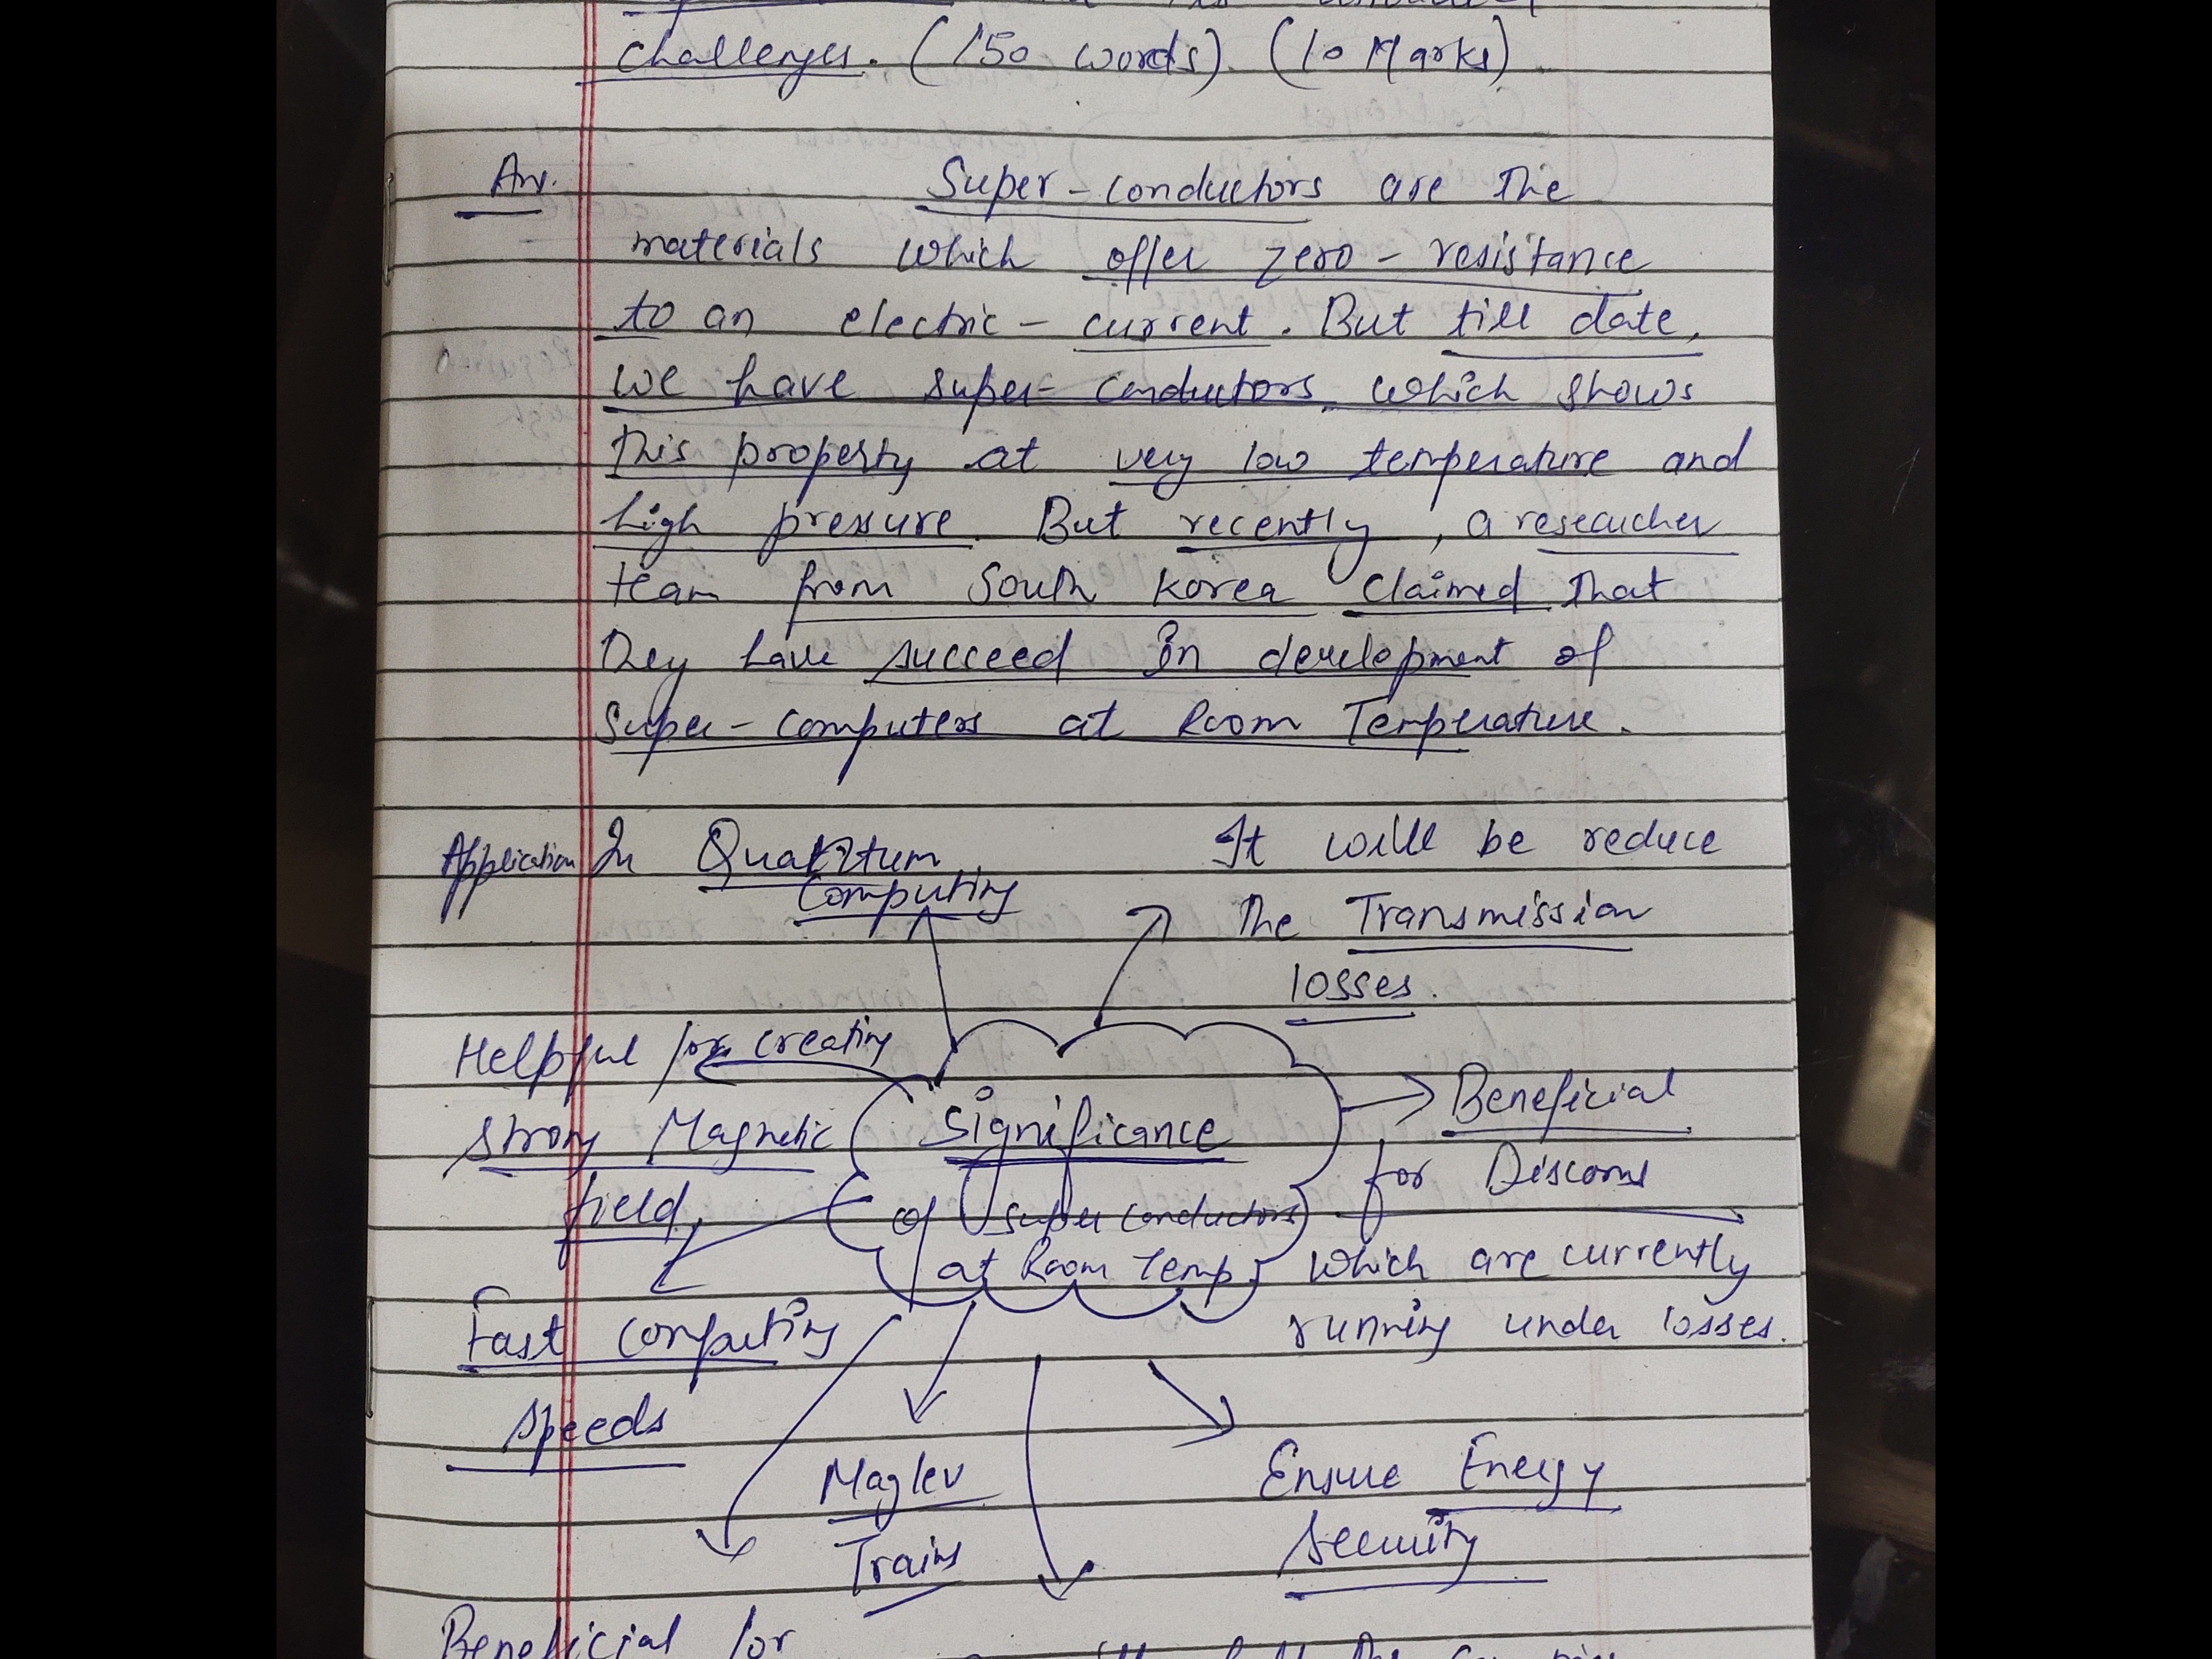 challenges. (150 words). (10 Marks).
Ans.
Super-conductors are the
materials which offer zero-resistance
to an electric-current. But till date,
we have super-conductors, which shows
this property at very low temperature and
high pressure. But recently, a researcher
team from South Korea claimed that
they have succeed in development of
Super-computers at Room Temperature.
Application In Quantum
Computing
It will be reduce
the Transmission
losses.
Helpful for creating
strong Magnetic
field,
Significance
of super conductors
at Room Temp
Beneficial
for Discoms
which are currently
running under losses.
Fast computing
speeds
Maglev
Trains
Ensure Energy
Security
Beneficial for